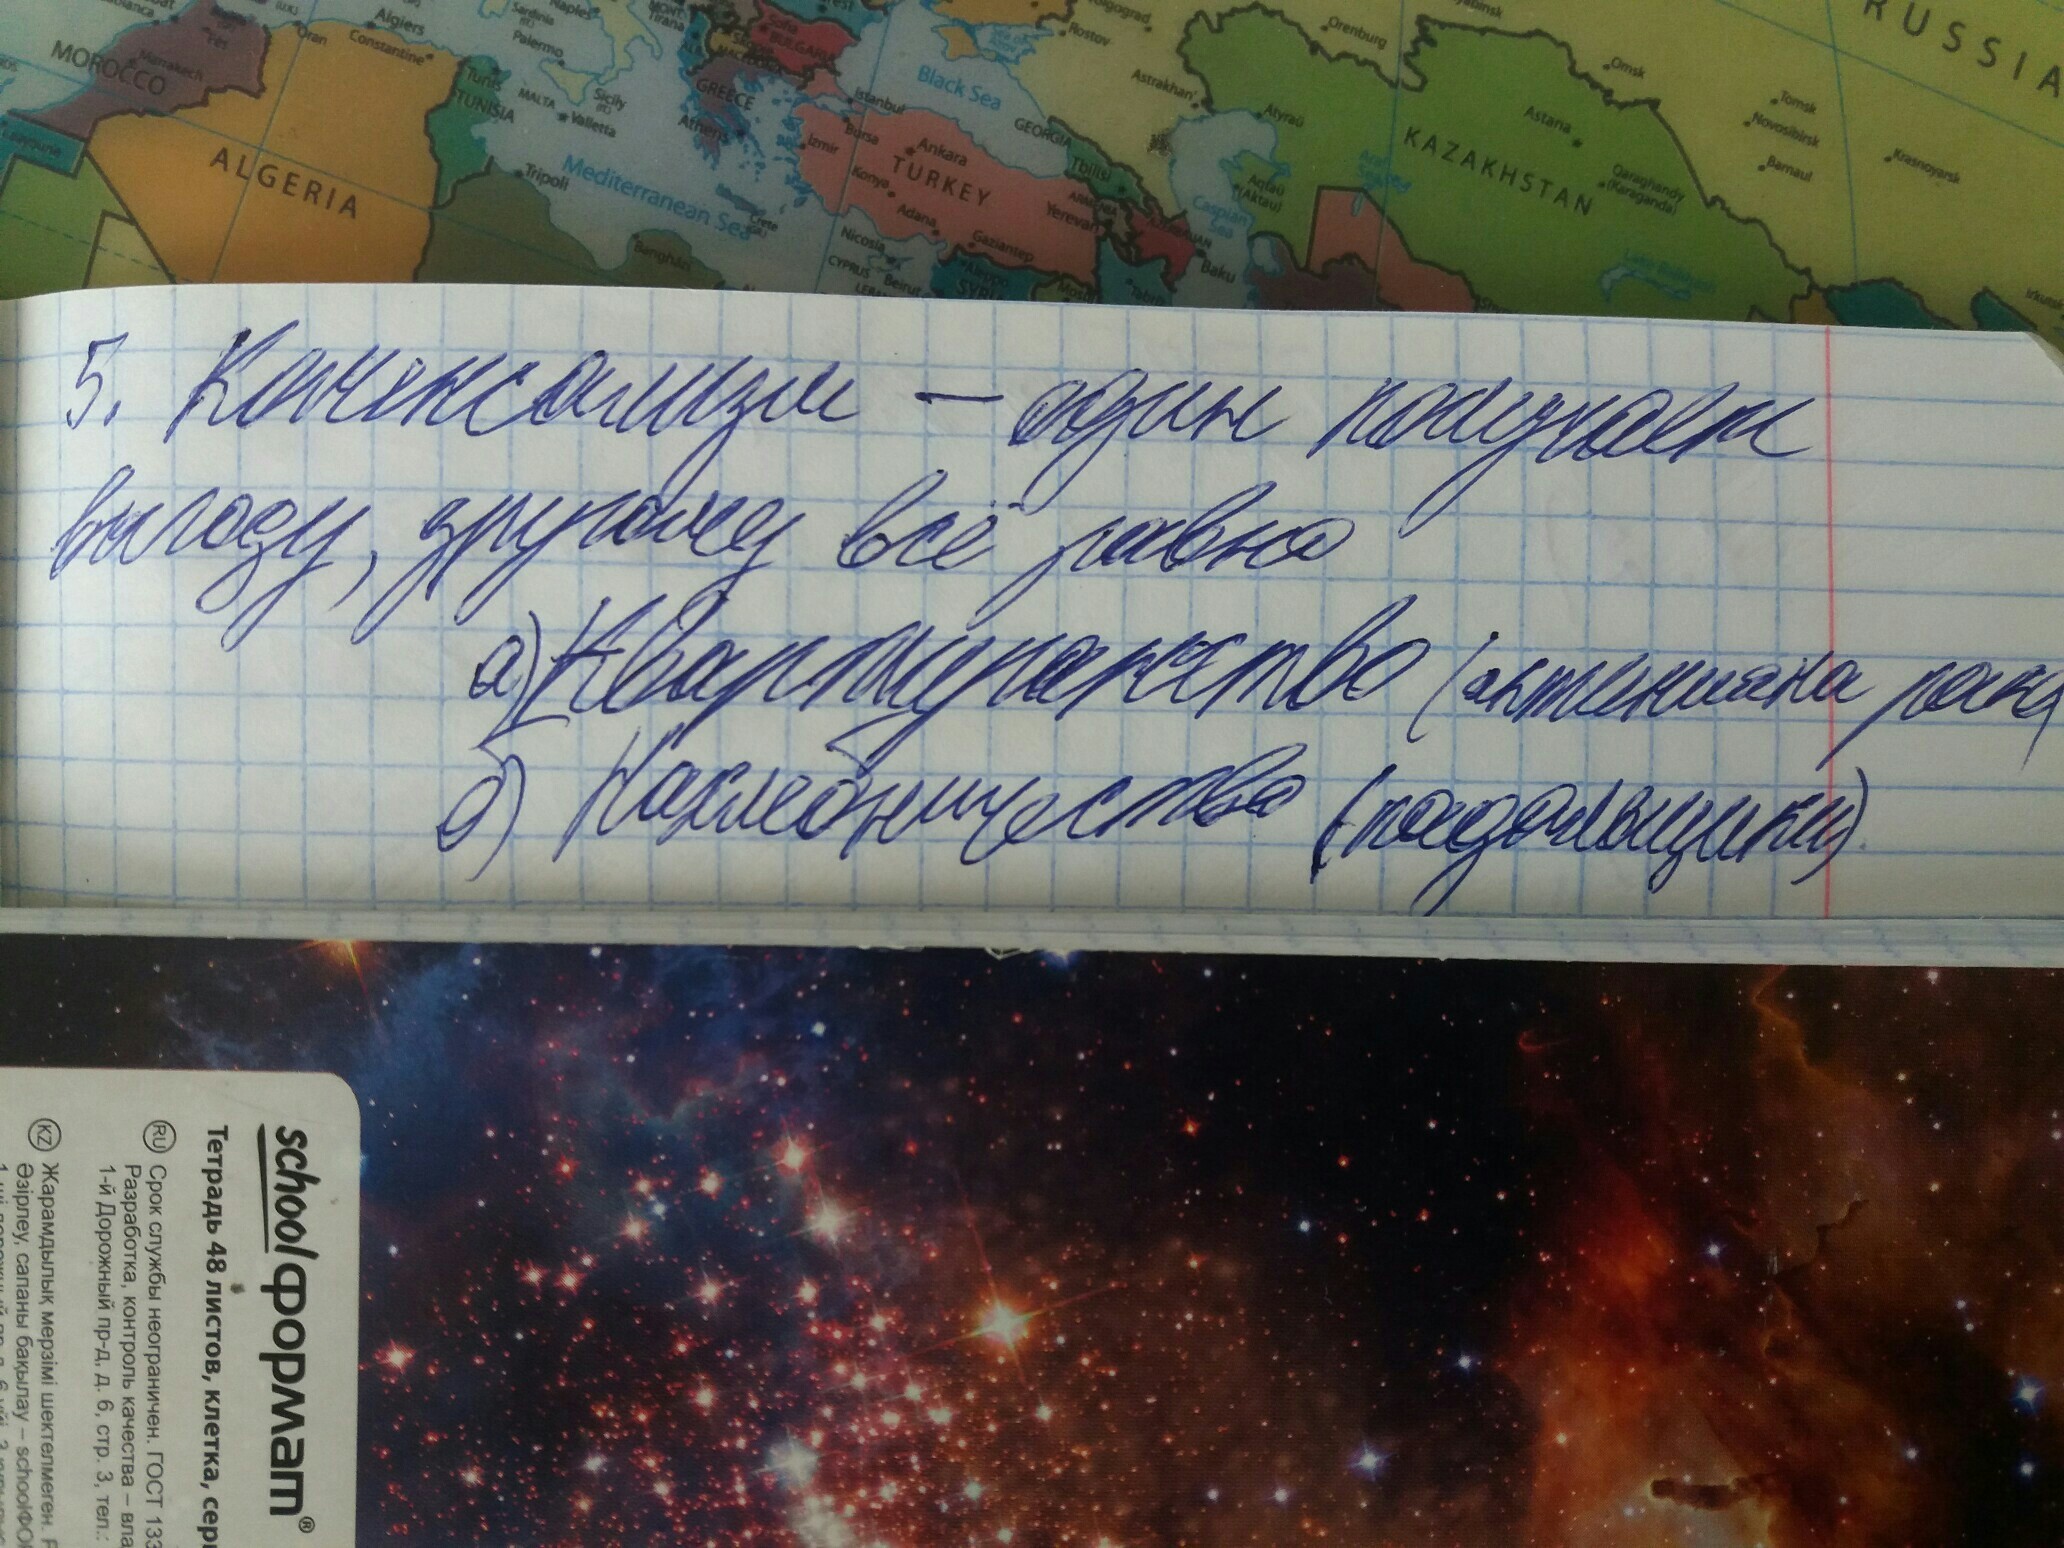 RUSSIA
MOROCCO
Marrakech
Fès
Oran
Algiers
Constantine
Tunis
TUNISIA
ALGERIA
Sardinia
Naples
Palermo
Sicily
MALTA
Valletta
Tripoli
Mediterranean Sea
Banghāzī
Tirana
Sofia
BULGARIA
GREECE
Athens
Crete
Istanbul
Bursa
Izmir
Ankara
TURKEY
Konya
Adana
Gaziantep
Nicosia
CYPRUS
Beirut
Aleppo
SYRIA
Black Sea
GEORGIA
Tbilisi
Yerevan
Baku
Tabriz
Caspian Sea
Volgograd
Rostov
Astrakhan'
Atyraū
Aqtaū (Aktau)
Orenburg
KAZAKHSTAN
Astana
Qaraghandy (Karaganda)
Omsk
Tomsk
Novosibirsk
Barnaul
Krasnoyarsk
5. Коменсализм – один получает
выгоду, другому всё равно
а) Квартиранство (актиния на рака)
б) Нахлебничество (падальщики)
schoolформат®
Тетрадь 48 листов, клетка,
RU Срок службы неограничен. ГОСТ
Разработка, контроль качества –
1-й Дорожный пр-д, д. 6, стр. 3, тел.:
KZ Жарамдылық мерзімі шектелмеген.
Әзірлеу, сапаны бақылау – schoolФО